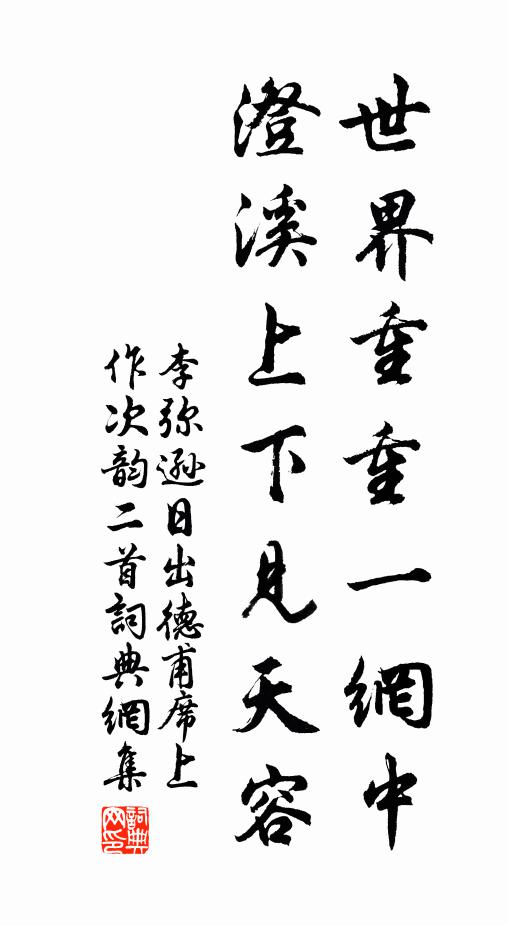 世界重重一網中
澄溪上下見天容
李弥遜日出德甫席上
作次韵二首詞典網集
詞典
网印